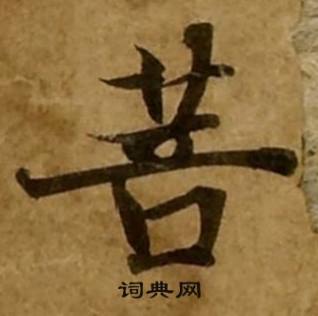 菩
词典网